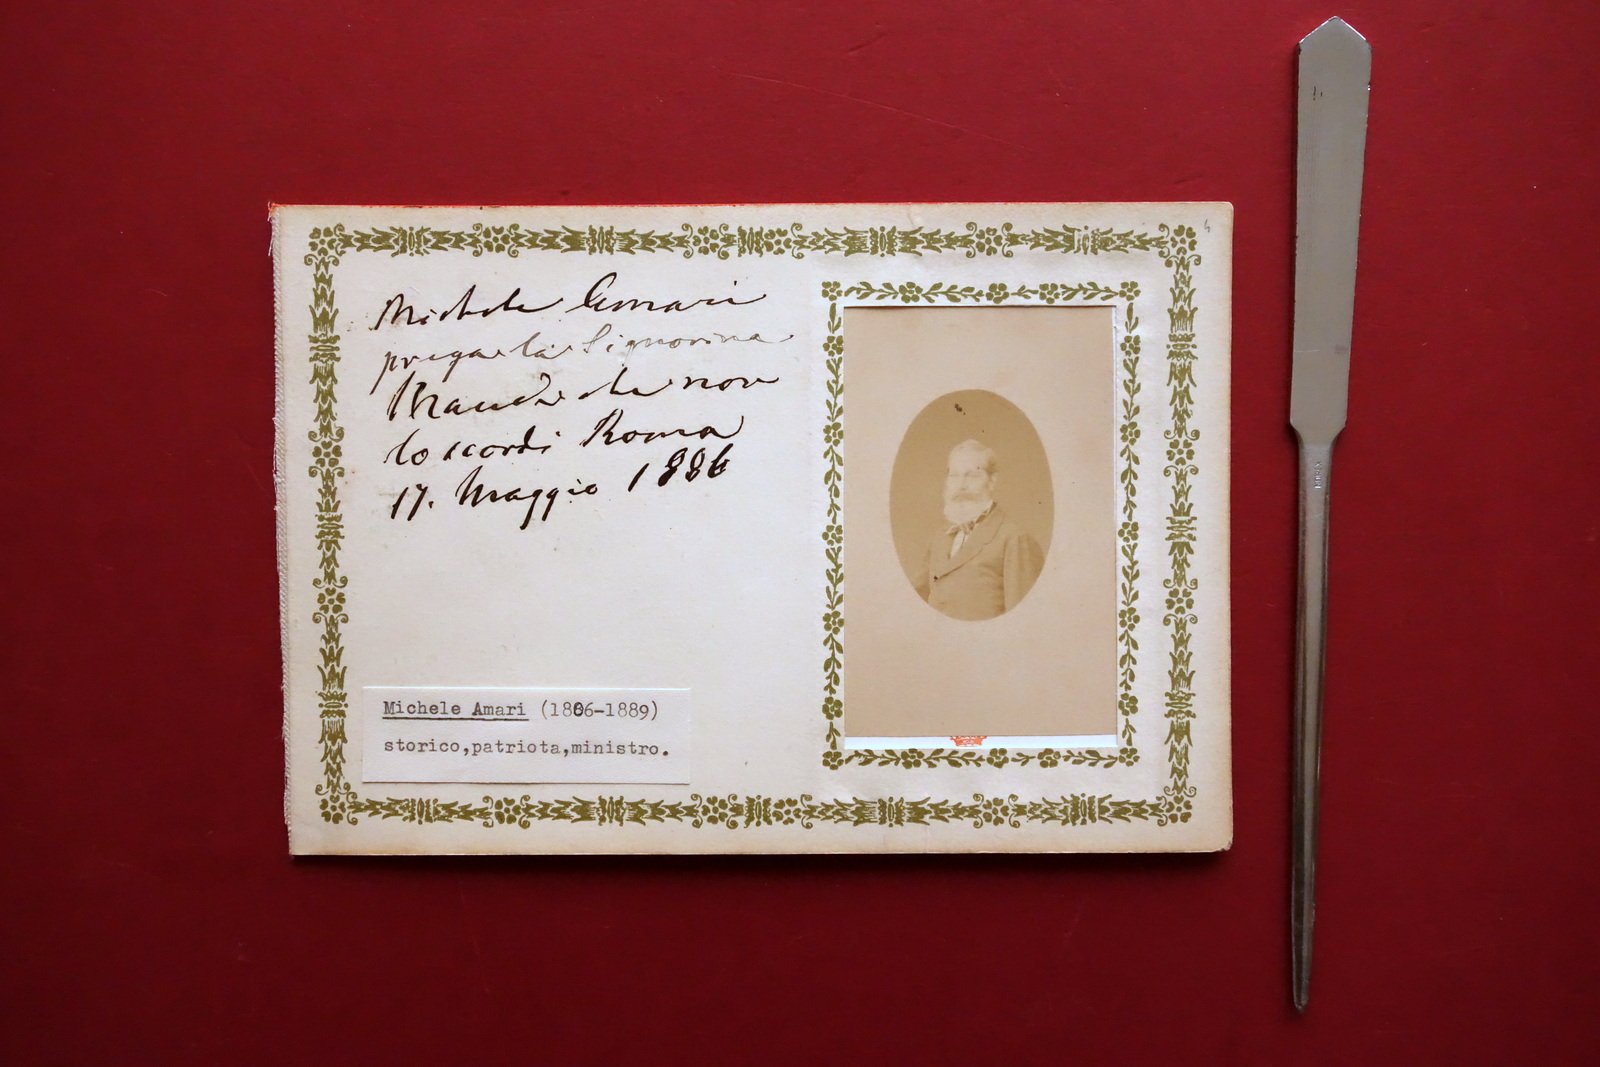 Michele Amari
prega la Signorina
Maud che non
lo scordi Roma
17. Maggio 1886
Michele Amari (1806-1889)
storico,patriota,ministro.